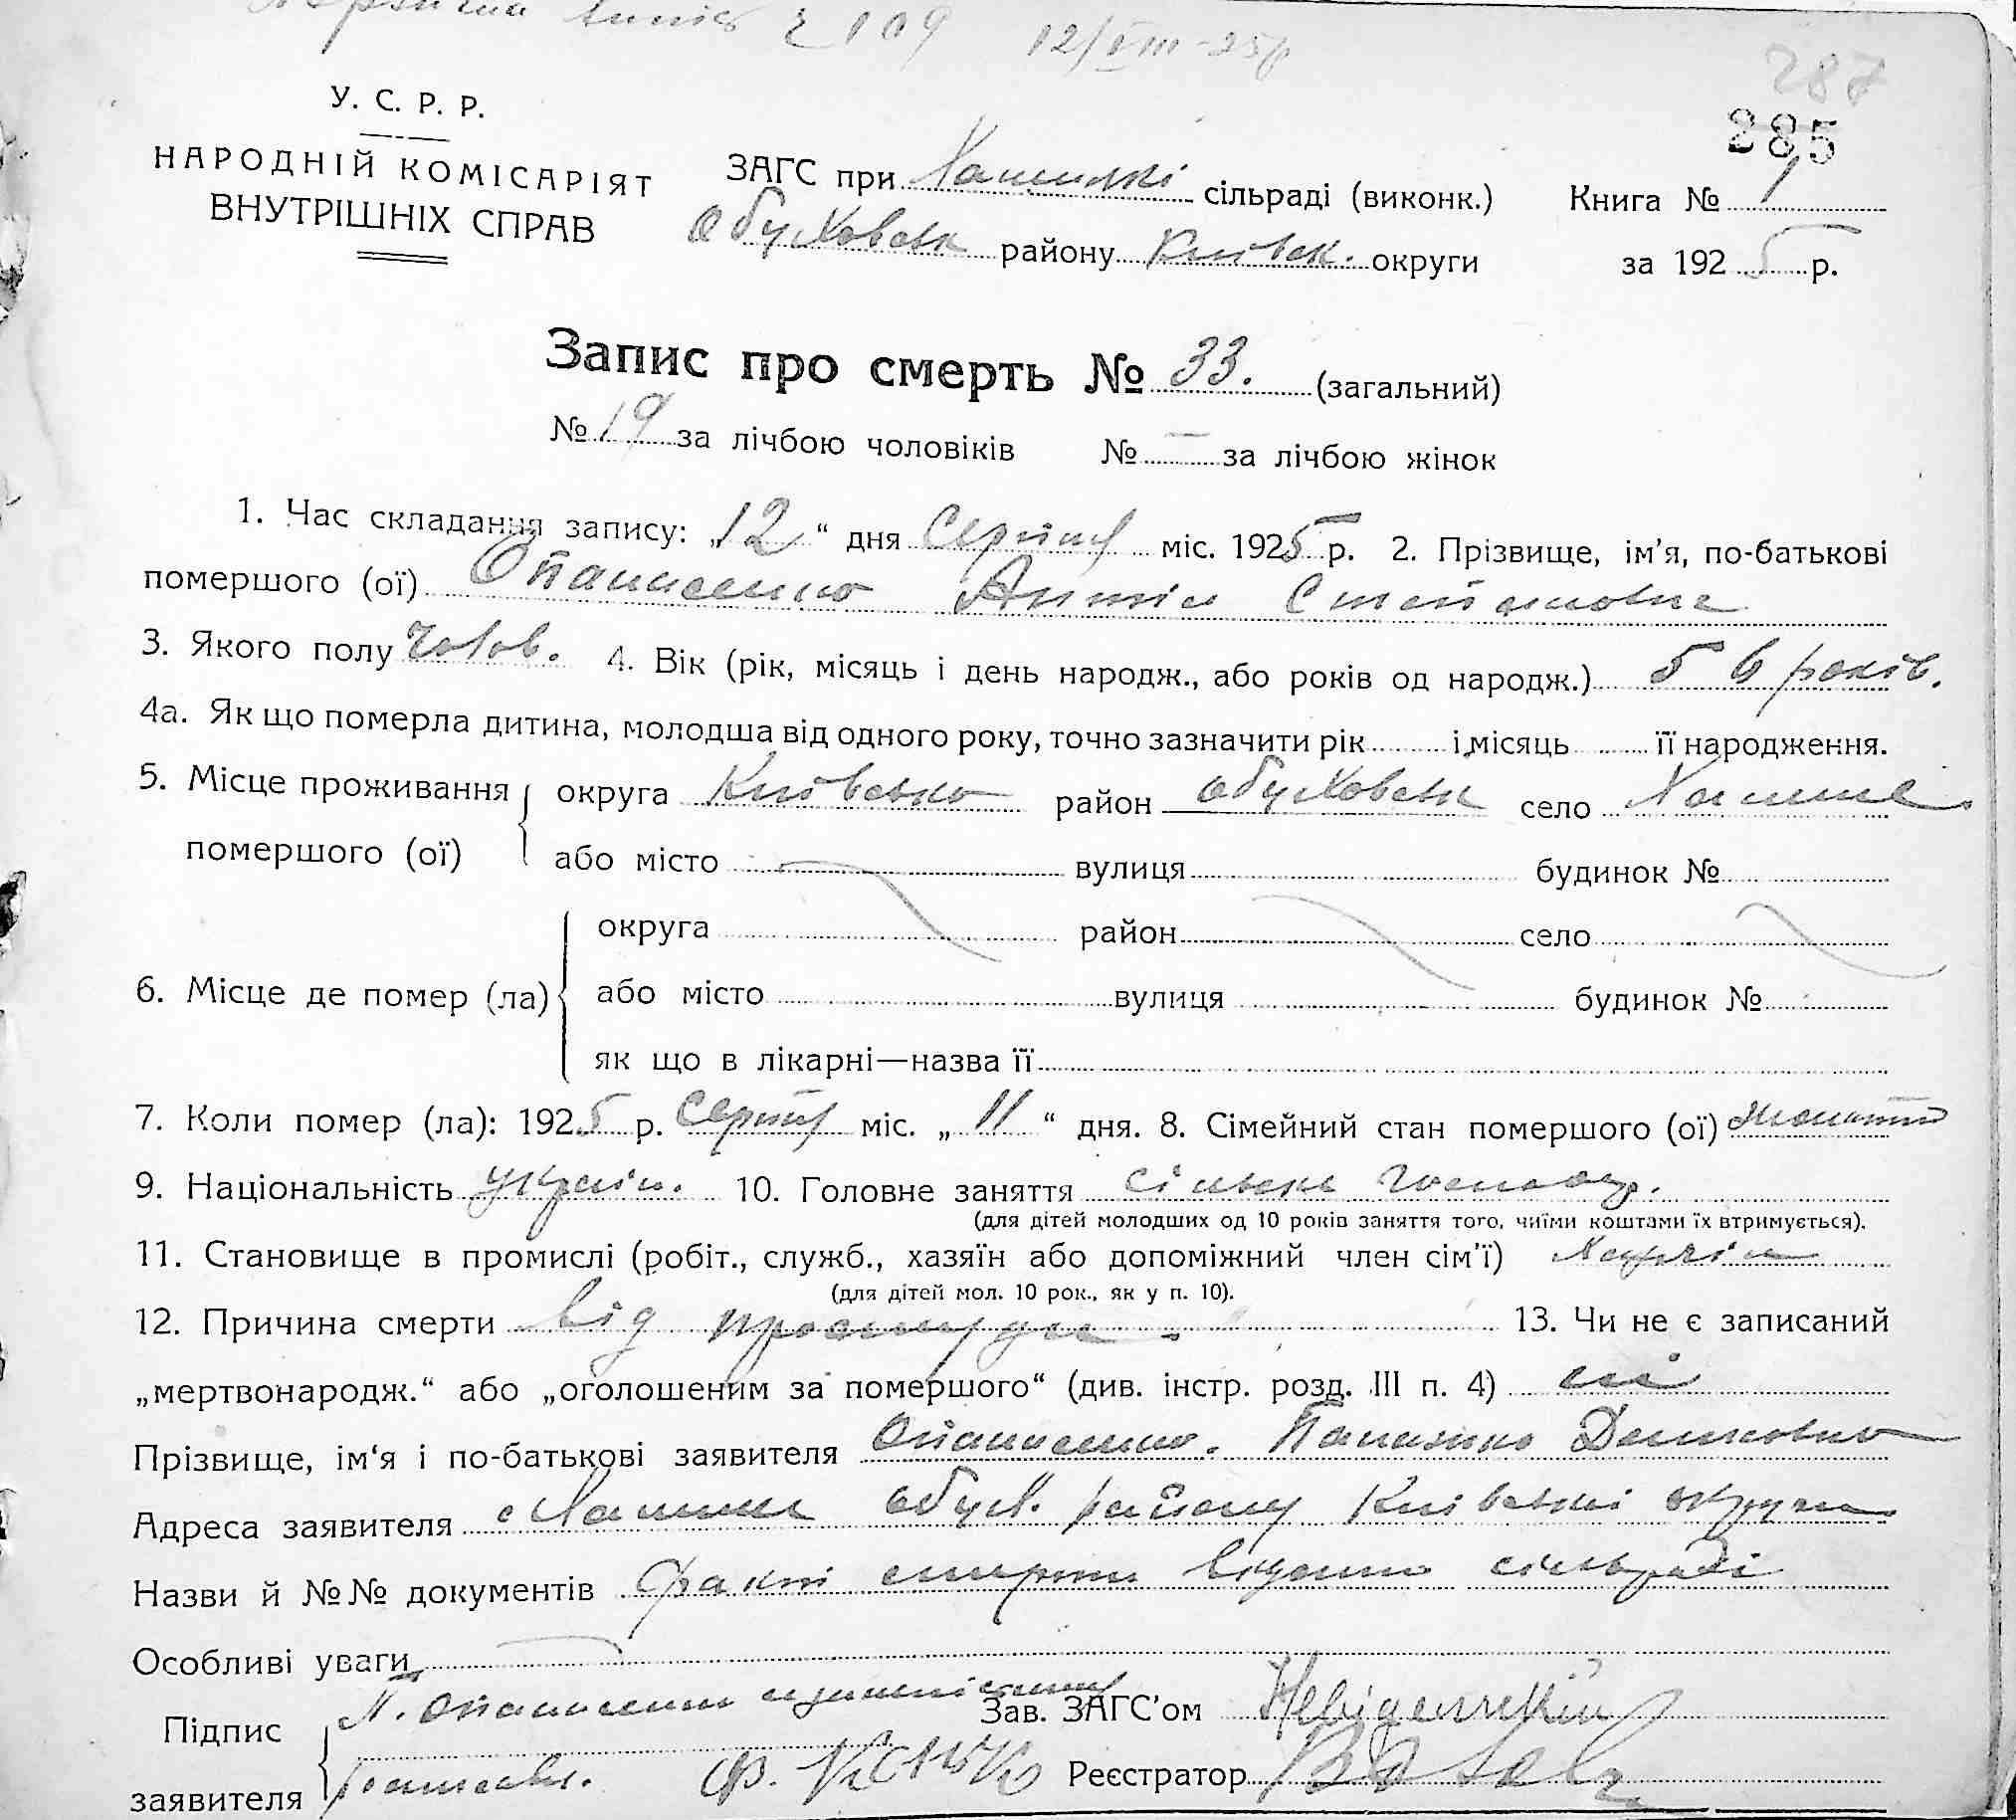 109 12/VIII-25р
287
У. С. Р. Р.
285
НАРОДНІЙ КОМІСАРІЯТ
ВНУТРІШНІХ СПРАВ
ЗАГС при сільраді (виконк.) Книга № 1
Обуховськ району Київськ. округи за 1925 р.
Запис про смерть № 33. (загальний)
№ 19 за лічбою чоловіків № — за лічбою жінок
1. Час складання запису: „12“ дня Серпня міс. 1925 р. 2. Прізвище, ім’я, по-батькові
помершого (ої) Опанасенко Антін Степанович
3. Якого полу чолов. 4. Вік (рік, місяць і день народж., або років од народж.) 56 років.
4а. Як що померла дитина, молодша від одного року, точно зазначити рік і місяць її народження.
5. Місце проживання округа Київська район Обуховськ село
помершого (ої) або місто вулиця будинок №
округа район село
6. Місце де помер (ла) або місто вулиця будинок №
як що в лікарні—назва її
7. Коли помер (ла): 1925 р. Серпня міс. „11“ дня. 8. Сімейний стан помершого (ої)
9. Національність україн. 10. Головне заняття сільське господар.
(для дітей молодших од 10 років заняття того, чиїми коштами їх втримується).
11. Становище в промислі (робіт., служб., хазяїн або допоміжний член сім’ї) Хазяїн
(для дітей мол. 10 рок., як у п. 10).
12. Причина смерти від простуди. 13. Чи не є записаний
„мертвонародж.“ або „оголошеним за помершого“ (див. інстр. розд. III п. 4) ні
Прізвище, ім‘я і по-батькові заявителя Опанасенко.
Адреса заявителя с. Обух. району Київські округи
Назви й №№ документів Факт смерти сільраді
Особливі уваги
Підпис Опанасенко Зав. ЗАГС’ом
заявителя Ф. Реєстратор